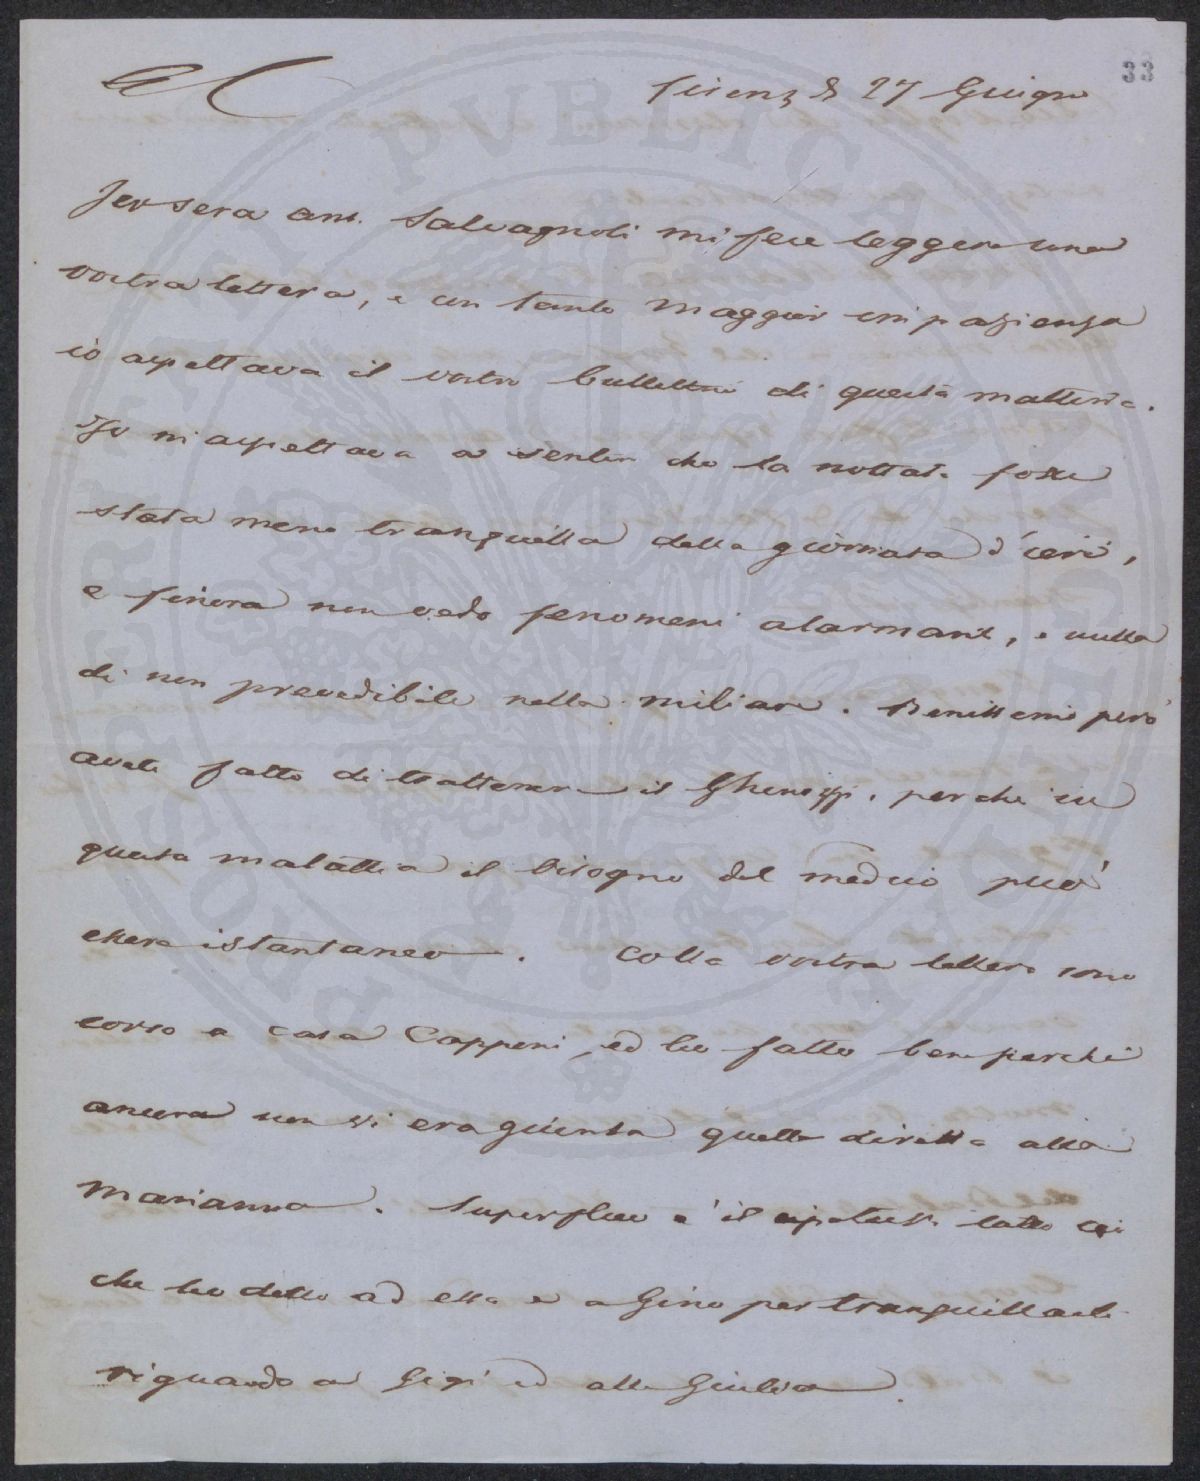 33
Firenze 27 Giugno
Jersera anc. Salvagnoli mi fece leggere una
vostra lettera, e con tanto maggior impazienza
io aspettava il vostro bullettino di questa mattina.
Io mi aspettava a sentire che la nottata fosse
stata meno tranquilla della giornata d'ieri,
e finora non vedo fenomeni alarmanti, e nulla
di non prevedibile nella miliare. Benissimo però
avete fatto di trattenere il Ghinozzi, perchè in
questa malattia il bisogno del medico può
essere istantaneo. Colla vostra lettera sono
corso a casa Capponi, ed ho fatto bene perchè
ancora non vi era giunta quella diretta alla
Marianna. Superfluo è il ripetervi tutto ciò
che ho detto ad essa e a Gino per tranquillarli
riguardo a Gigi ed alla Giulia.